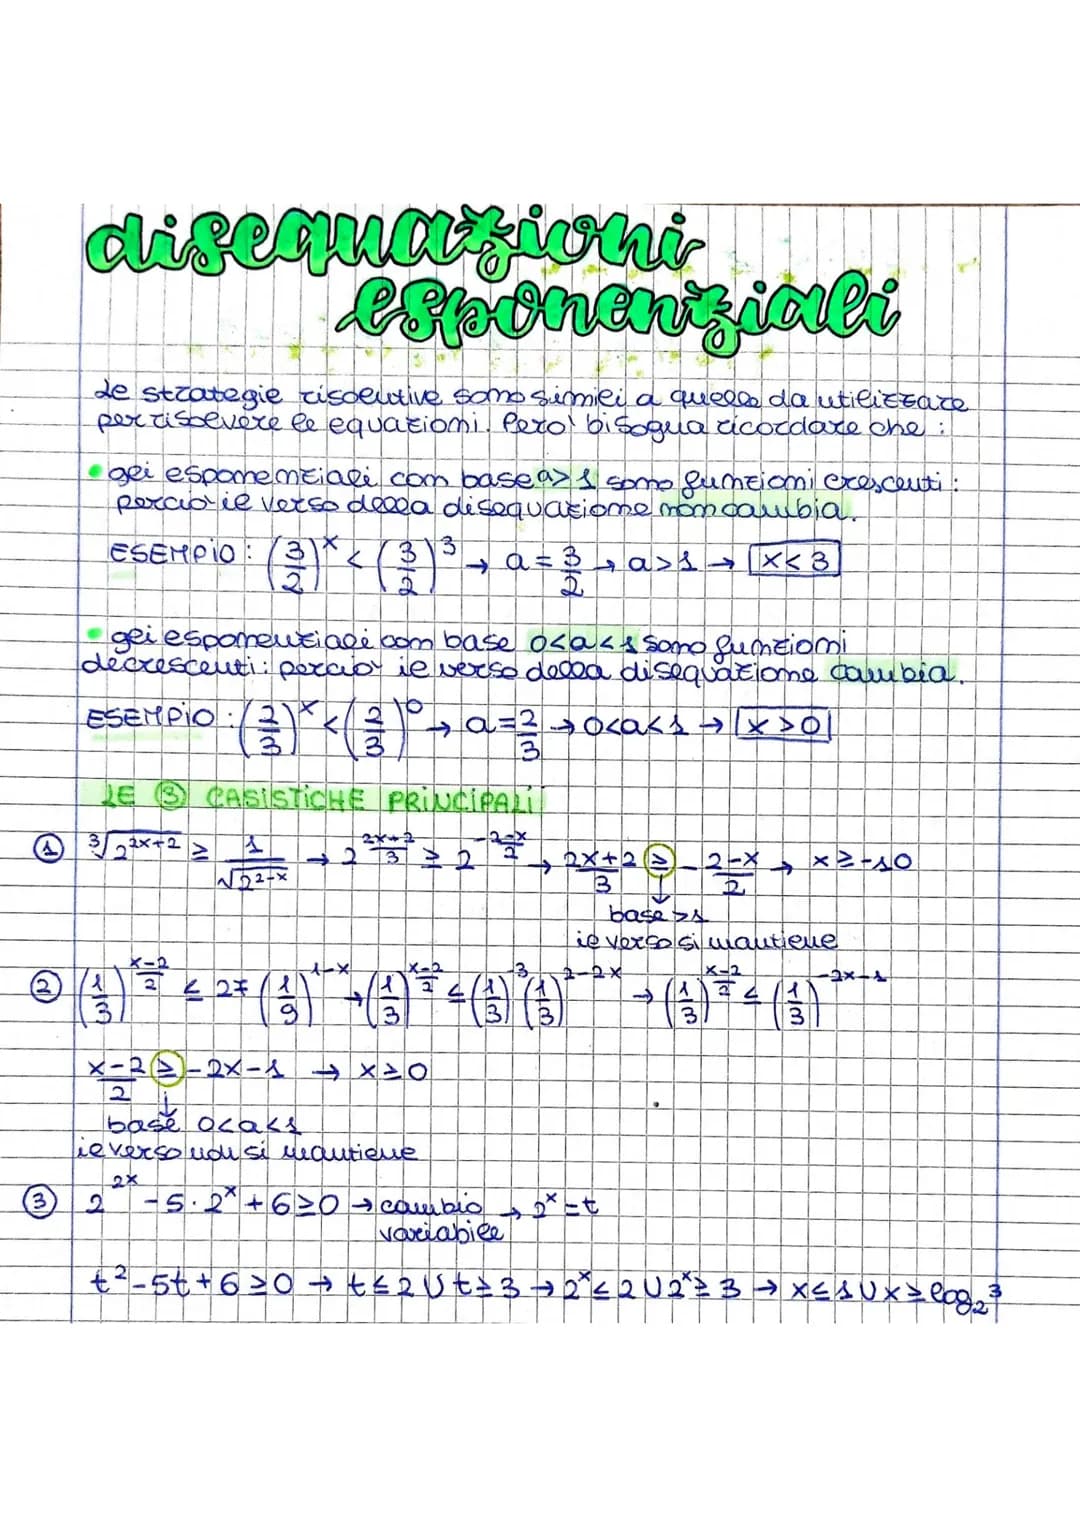 disequazioni
esponenziali
Le strategie risolutive sono simili a quelle da utilizzare
per risolvere le equazioni. Pero' bisogna ricordare che :
• gli esponenziali con base a>1 sono funzioni crescenti :
percio' il verso della disequazione non cambia.
ESEMPIO : (3/2)^x < (3/2)^3 → a = 3/2 → a>1 → x<3
• gli esponenziali con base 0<a<1 sono funzioni
decrescenti : percio' il verso della disequazione cambia.
ESEMPIO : (2/3)^x < (2/3)^0 → a = 2/3 → 0<a<1 → x>0
LE ③ CASISTICHE PRINCIPALI
① ∛(2^(2x+2)) ≥ 1/√(2^(2-x)) → 2^((2x+2)/3) ≥ 2^(-(2-x)/2) → (2x+2)/3 ≥ -(2-x)/2 → x ≥ -10
↓
base >1
il verso si mantiene
② (1/3)^((x-2)/2) ≤ 27 (1/9)^(1-x) → (1/3)^((x-2)/2) ≤ (1/3)^(-3) (1/3)^(2-2x) → (1/3)^((x-2)/2) ≤ (1/3)^(-2x-1)
(x-2)/2 ≥ -2x-1 → x ≥ 0
↓
base 0<a<1
il verso non si mantiene
③ 2^(2x) - 5 · 2^x + 6 ≥ 0 → cambio → 2^x = t
variabile
t² - 5t + 6 ≥ 0 → t ≤ 2 ∪ t ≥ 3 → 2^x ≤ 2 ∪ 2^x ≥ 3 → x ≤ 1 ∪ x ≥ log₂³